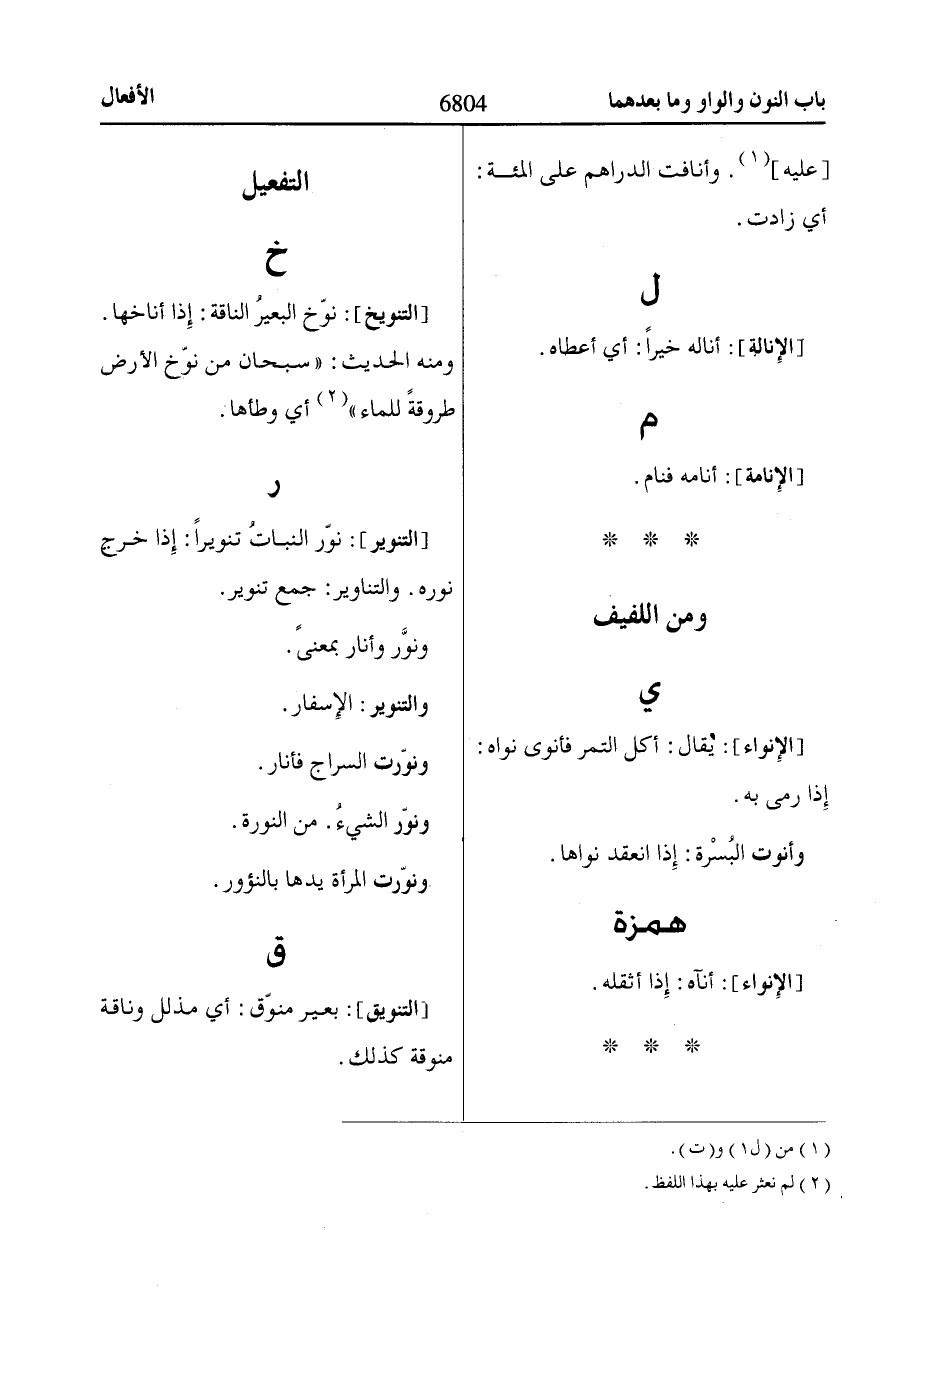 باب النون والواو وما بعدهما
6804
الأفعال
[عليه](١). وأنافت الدراهم على المئـة:
أي زادت.
ل
[الإنالة]: أناله خيراً: أي أعطاه.
م
[الإنامة]: أنامه فنام.
* * *
ومن اللفيف
ي
[الإنواء]: يُقال: أكل التمر فأنوى نواه:
إذا رمى به.
وأنوت البُسْرة: إذا انعقد نواها.
همزة
[الإنواء]: أنآه: إذا أثقله.
* * *
التفعيل
خ
[التنويخ]: نوّخ البعيرُ الناقة: إذا أناخها.
ومنه الحديث: «سبحان من نوّخ الأرض
طروقةً للماء»(٢) أي وطأها.
ر
[التنوير]: نوّر النباتُ تنويراً: إذا خرج
نوره. والتناوير: جمع تنوير.
ونوَّر وأنار بمعنىً.
والتنوير: الإسفار.
ونوّرت السراج فأنار.
ونوّر الشيءُ. من النورة.
ونوّرت المرأة يدها بالنؤور.
ق
[التنويق]: بعير منوّق: أي مذلل وناقة
منوقة كذلك.
(١) من (ل١) و(ت).
(٢) لم نعثر عليه بهذا اللفظ.